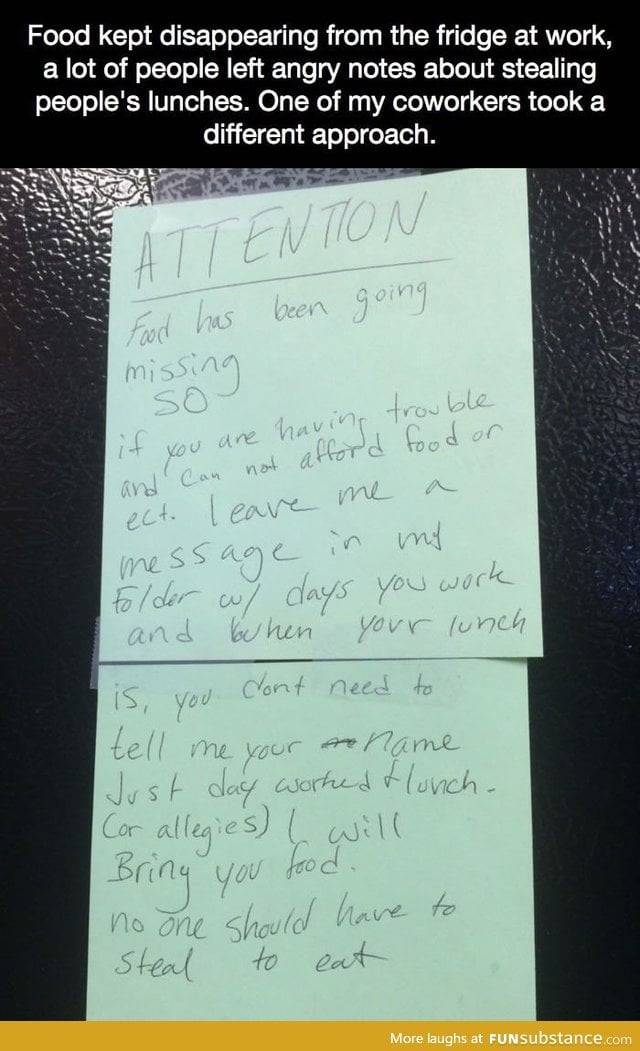 Food kept disappearing from the fridge at work,
a lot of people left angry notes about stealing
people's lunches. One of my coworkers took a
different approach.
ATTENTION
Food has been going
missing
SO
if you are having trouble
and can not afford food or
ect. leave me a
message in my
folder w/ days you work
and when your lunch
is, you dont need to
tell me your name
Just day worked + lunch.
(or allegies) I will
Bring you food.
no one should have to
steal to eat
More laughs at FUNsubstance.com